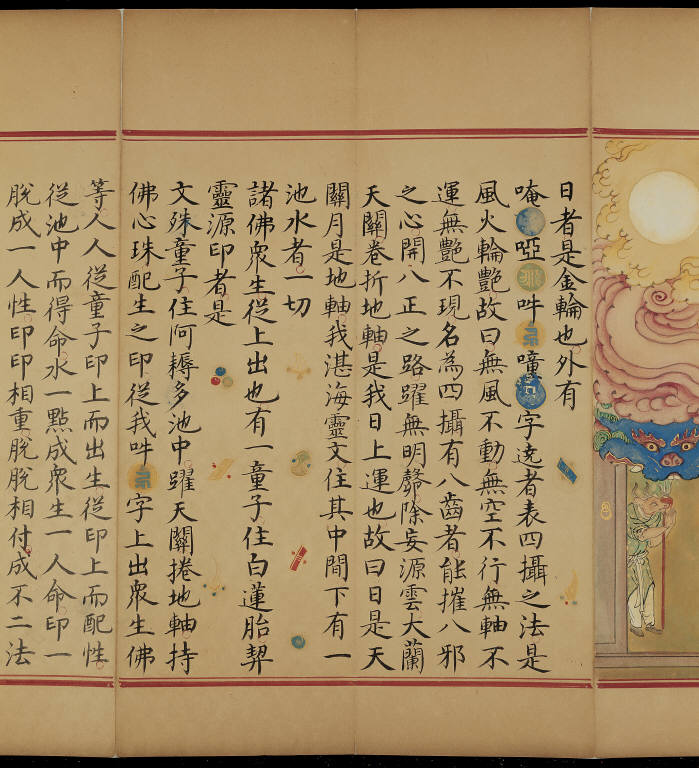 日者是金輪也外有
唵啞吽㘕字遶者表四攝之法是
風火輪艷故曰無風不動無空不行無軸不
運無艷不現名為四攝有八齒者能摧八邪
之心開八正之路躍無明髒除妄源雲大蘭
天關卷折地軸是我日上運也故曰日是天
關月是地軸我湛海靈文住其中間下有一
池水者一切
諸佛衆生從上出也有一童子住白蓮胎契
靈源印者是
文殊童子住阿耨多池中躍天關捲地軸持
佛心珠配生之印從我吽字上出衆生佛
等人人從童子印上而出生從印上而配性
從池中而得命水一點成衆生一人命印一
脫成一人性印印相重脫脫相付成不二法